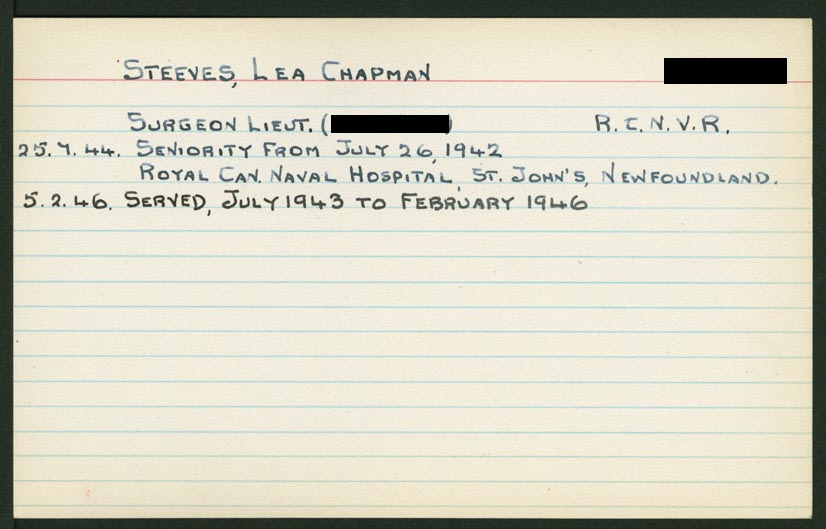 STEEVES, LEA CHAPMAN
SURGEON LIEUT. ( ) R.C.N.V.R.
25.7.44. SENIORITY FROM JULY 26, 1942
ROYAL CAN. NAVAL HOSPITAL, ST. JOHN'S, NEWFOUNDLAND.
5.2.46. SERVED, JULY 1943 TO FEBRUARY 1946